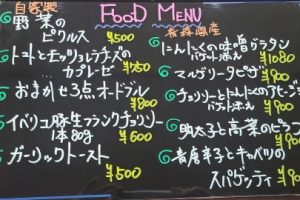 FOOD MENU
自家製
野菜の
ピクルス ¥500
トマトとモッツァレラチーズの
カプレーゼ ¥750
おまかせ3点オードブル
¥800
イベリコ豚生フランクチョリソー
1本80g ¥600
ガーリックトースト
¥500
青森県産
にんにくの味噌グラタン
バケット添え ¥1080
マルゲリータピザ
¥900
チョリソーとにんにくのアヒージョ
バケット添え ¥900
明太子と高菜のピラフ
¥900
青唐辛子とキャベツの
スパゲッティ ¥900